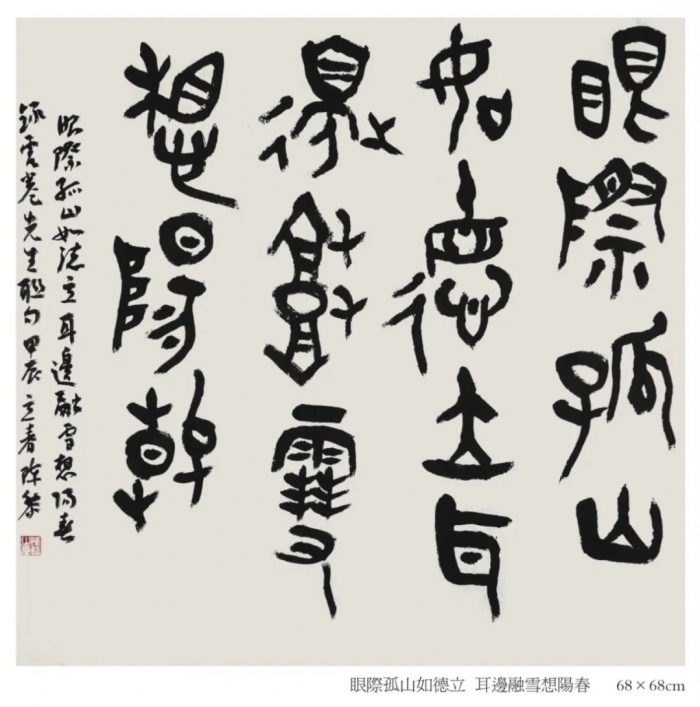 眼際孤山
如德立耳
邊融雪
想陽春
眼際孤山如德立耳邊融雪想陽春
錄雲巷先生聯句甲辰立春
眼際孤山如德立 耳邊融雪想陽春 68×68cm